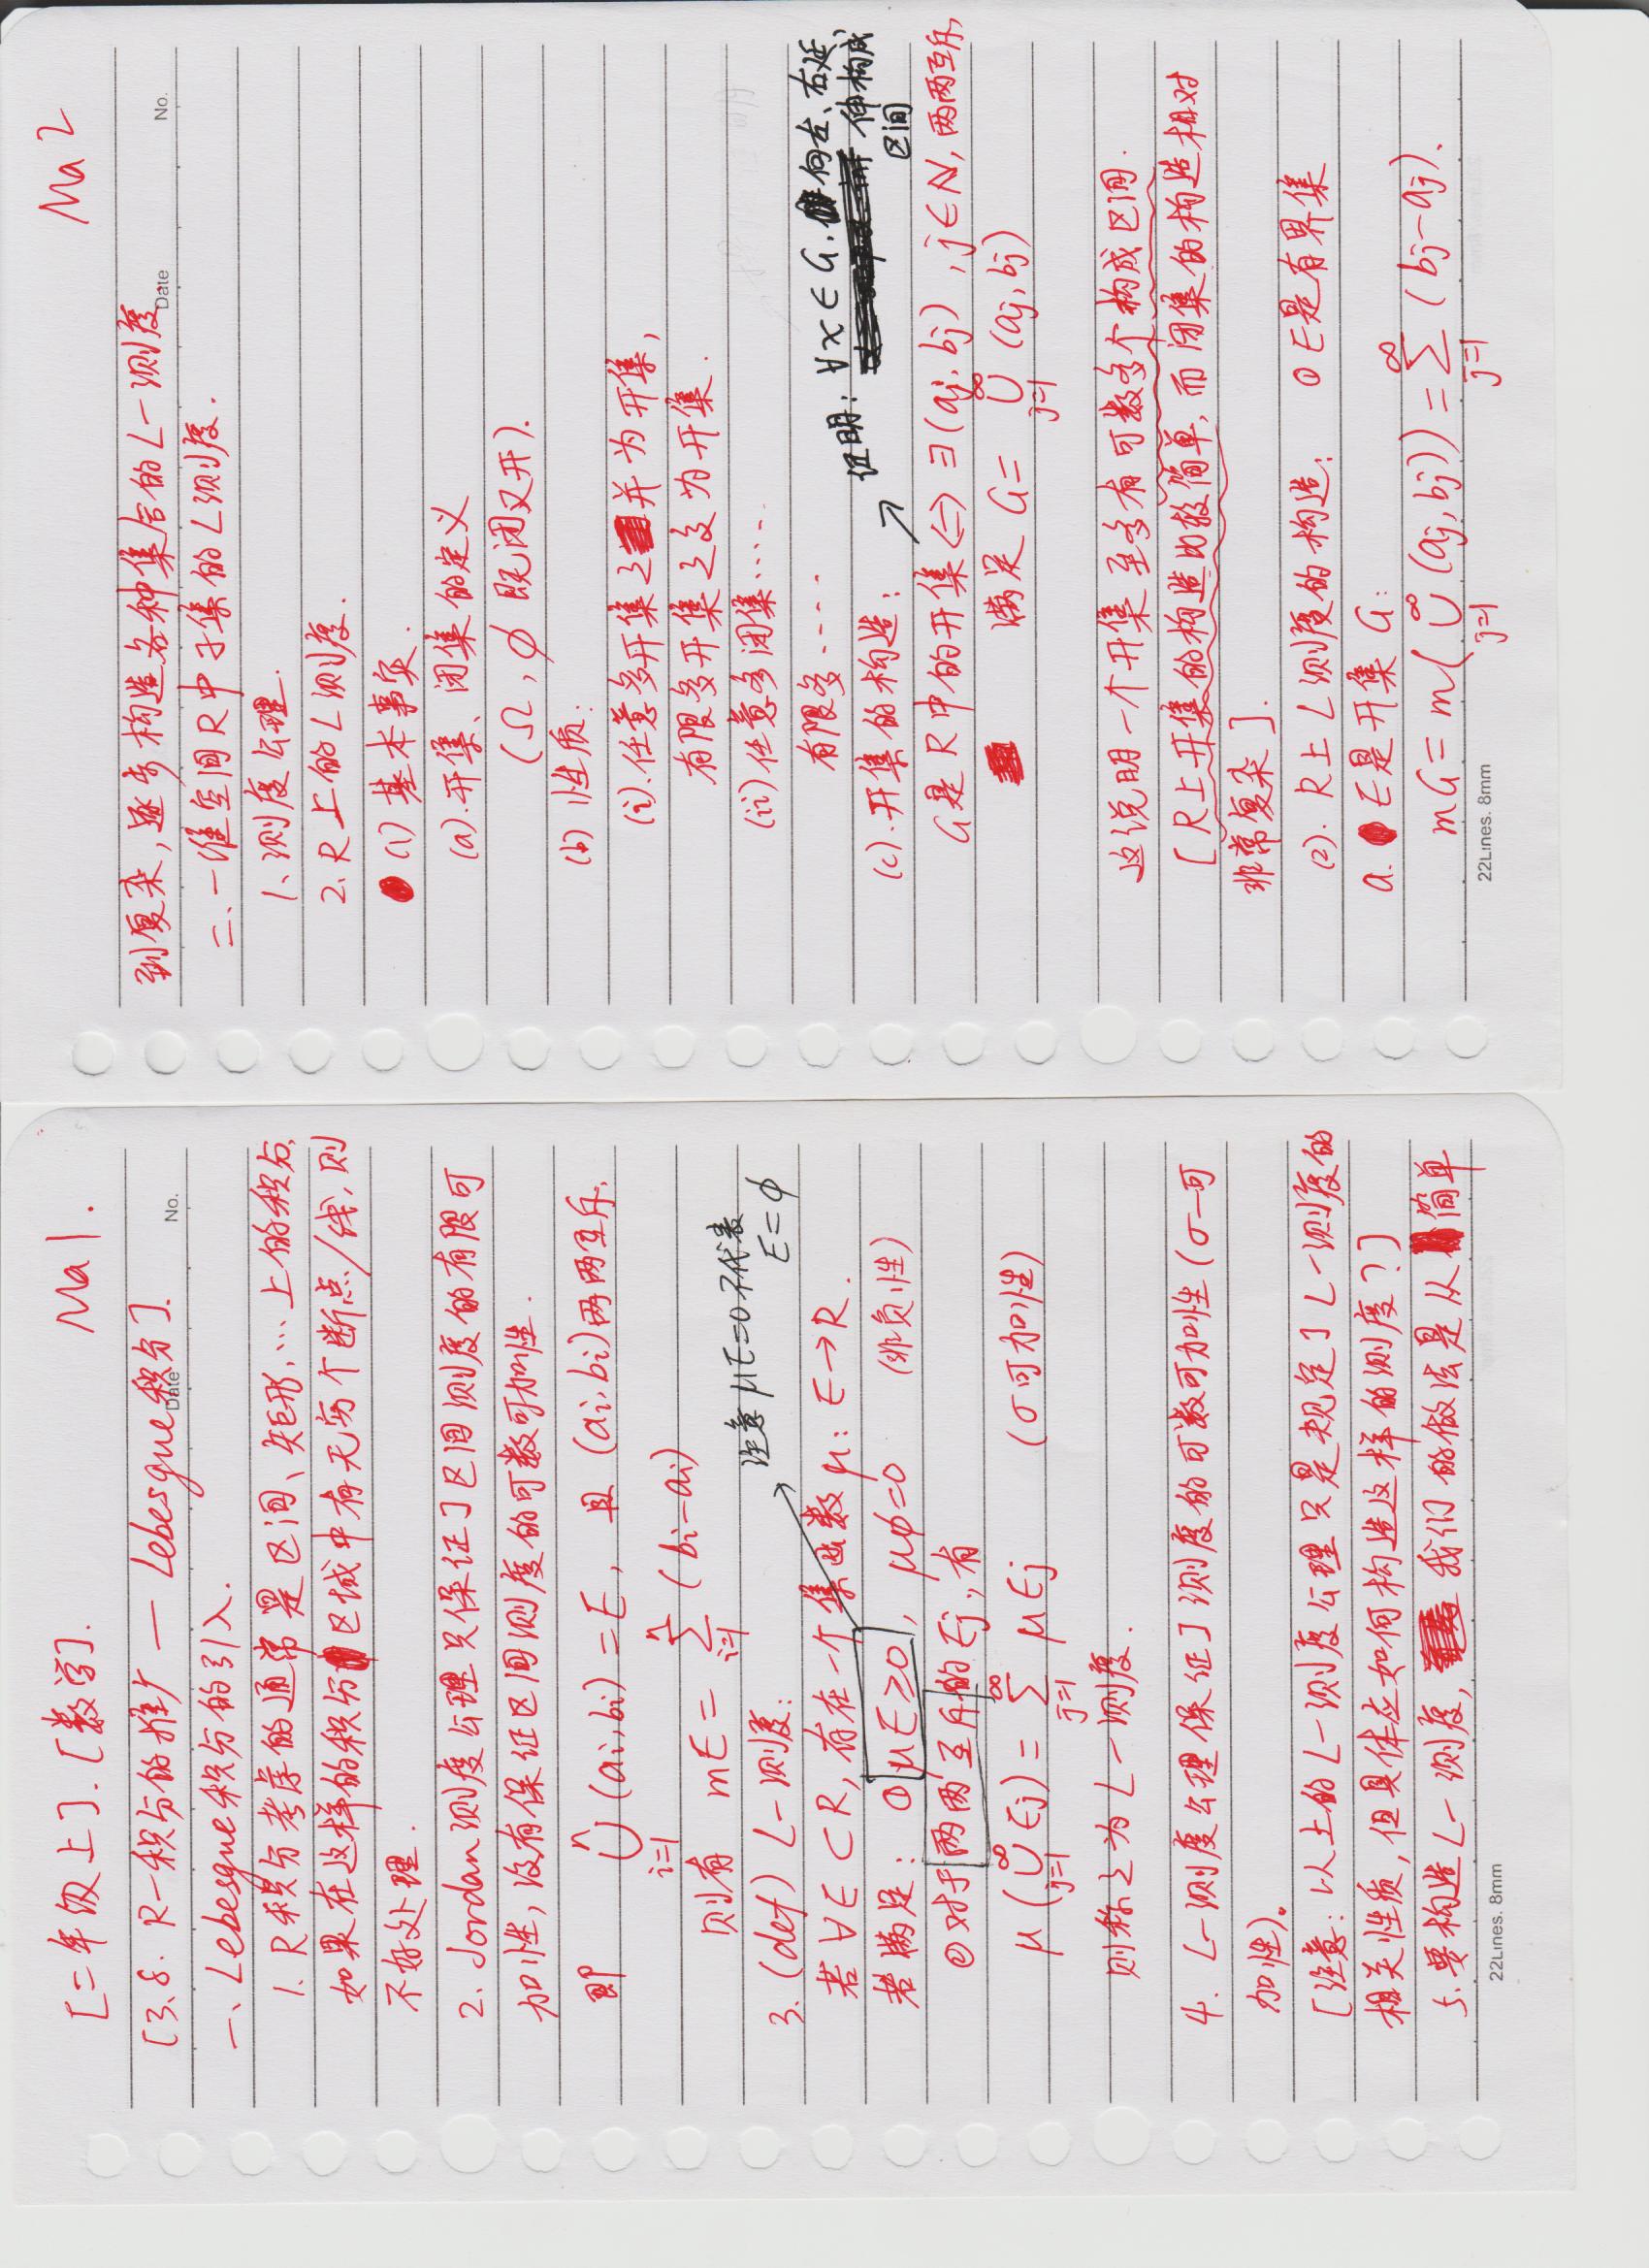 [二年级上].[数学].
Ma 1.
[3.8. R-积分的推广 — Lebesgue积分].
Date
No.
一、Lebesgue积分的引入.
1. R积分考虑的通常是区间、矩形,…上的积分,
如果在这样的积分区域中有无穷个断点/线,则
不好处理.
2. Jordan测度公理只保证了区间测度的有限可
加性,没有保证区间测度的可数可加性.
即 ⋃_{i=1}^{n} (ai,bi) = E, 且 (ai,bi)两两互斥,
则有 mE = ∑_{i=1}^{n} (bi-ai)
注意 μE=0 不代表
E=ϕ
3. (def) L-测度:
若∀E⊂R,存在一个集函数 μ: E→R.
若满足: ① μE≥0, μϕ=0 (非负性)
②对于两两互斥的Ej,有
μ(⋃_{j=1}^{∞} Ej) = ∑_{j=1}^{∞} μEj (σ可加性)
则称之为L-测度.
4. L-测度公理保证了测度的可数可加性(σ-可
加性)。
[注意:以上的L-测度公理只是规定了L-测度的
相关性质,但具体应如何构造这样的测度?]
5.要构造L-测度, 我们的做法是从简单
22Lines. 8mm
Ma 2
到复杂,逐步构造各种集合的L-测度.
Date
No.
二.一维空间R中子集的L测度.
1.测度公理.
2.R上的L测度.
(1) 基本事实.
(a).开集、闭集的定义
(Ω,ϕ 既闭又开).
(b) 性质:
(i).任意多开集之并为开集,
有限多开集之交为开集.
(ii) 任意多闭集……
有限多……
证明: ∀x∈G. 向左、右延
伸构成
区间
(c).开集的构造:
G是R中的开集⟺∃(aj,bj),j∈N,两两互斥,
满足 G= ⋃_{j=1}^{∞} (aj,bj)
这说明一个开集至多有可数多个构成区间.
[R上开集的构造比较简单,而闭集的构造相对
非常复杂].
(2). R上L测度的构造: ① E是有界集
a. E是开集 G:
mG = m(⋃_{j=1}^{∞} (aj,bj)) = ∑_{j=1}^{∞} (bj-aj).
22Lines. 8mm